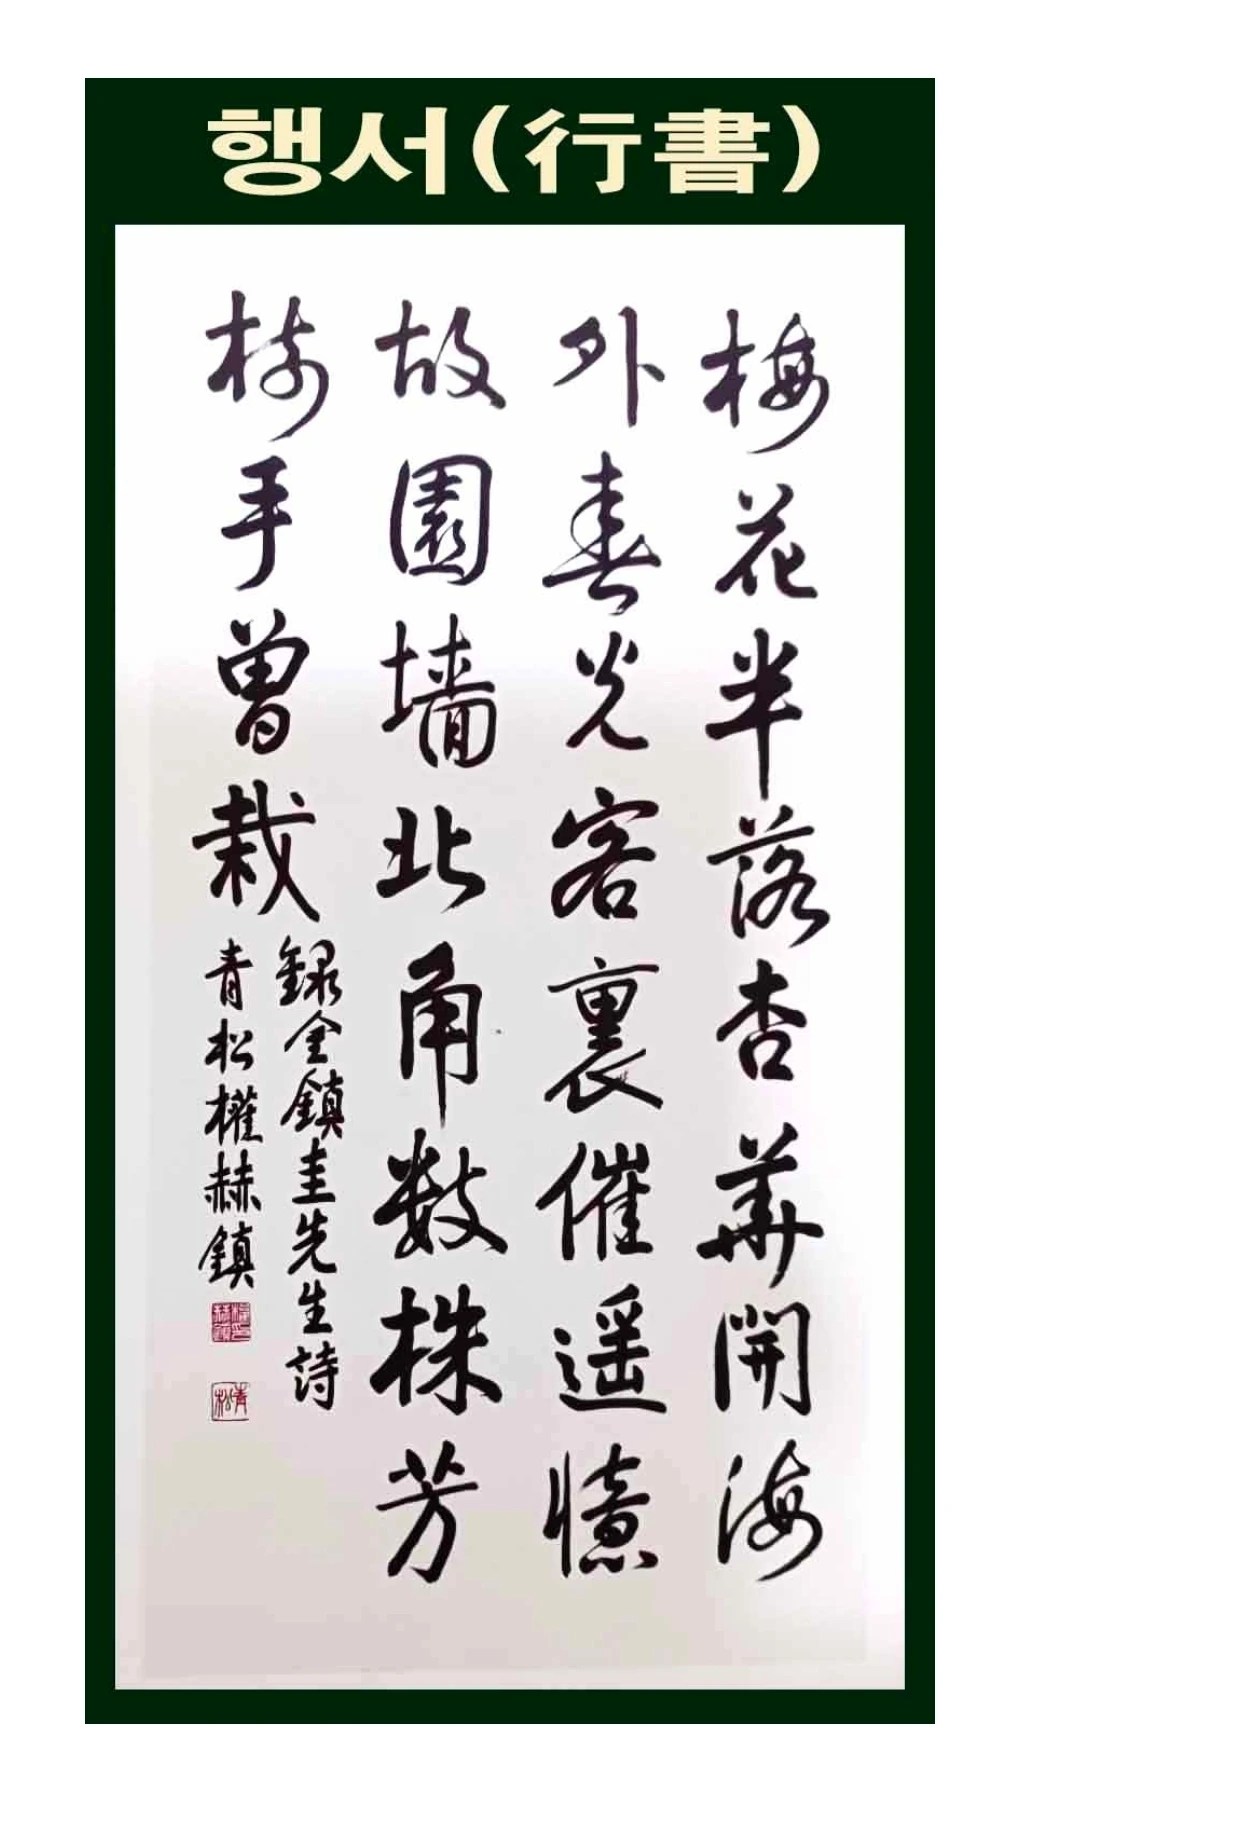 행서(行書)
梅花半落杏華開海
外春光客裏催遥憶
故園墻北角数株芳
樹手曽栽
録金鎮圭先生詩
青松權赫鎮
青松